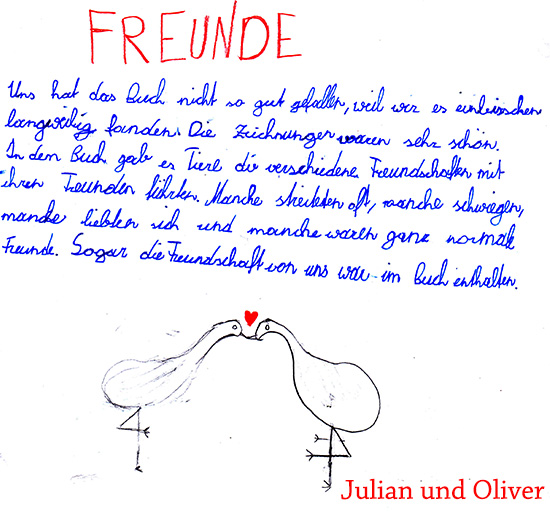 FREUNDE
Uns hat das Buch nicht so gut gefallen, weil wir es einbisschen
langweilig fanden. Die Zeichnungen waren sehr schön.
In dem Buch gab es Tiere die verschiedene Freundschaften mit
ihren Freunden führten. Manche streiteten oft, manche schwiegen,
manche liebten sich und manche waren ganz normale
Freunde. Sogar die Freundschaft von uns war im Buch enthalten.
Julian und Oliver